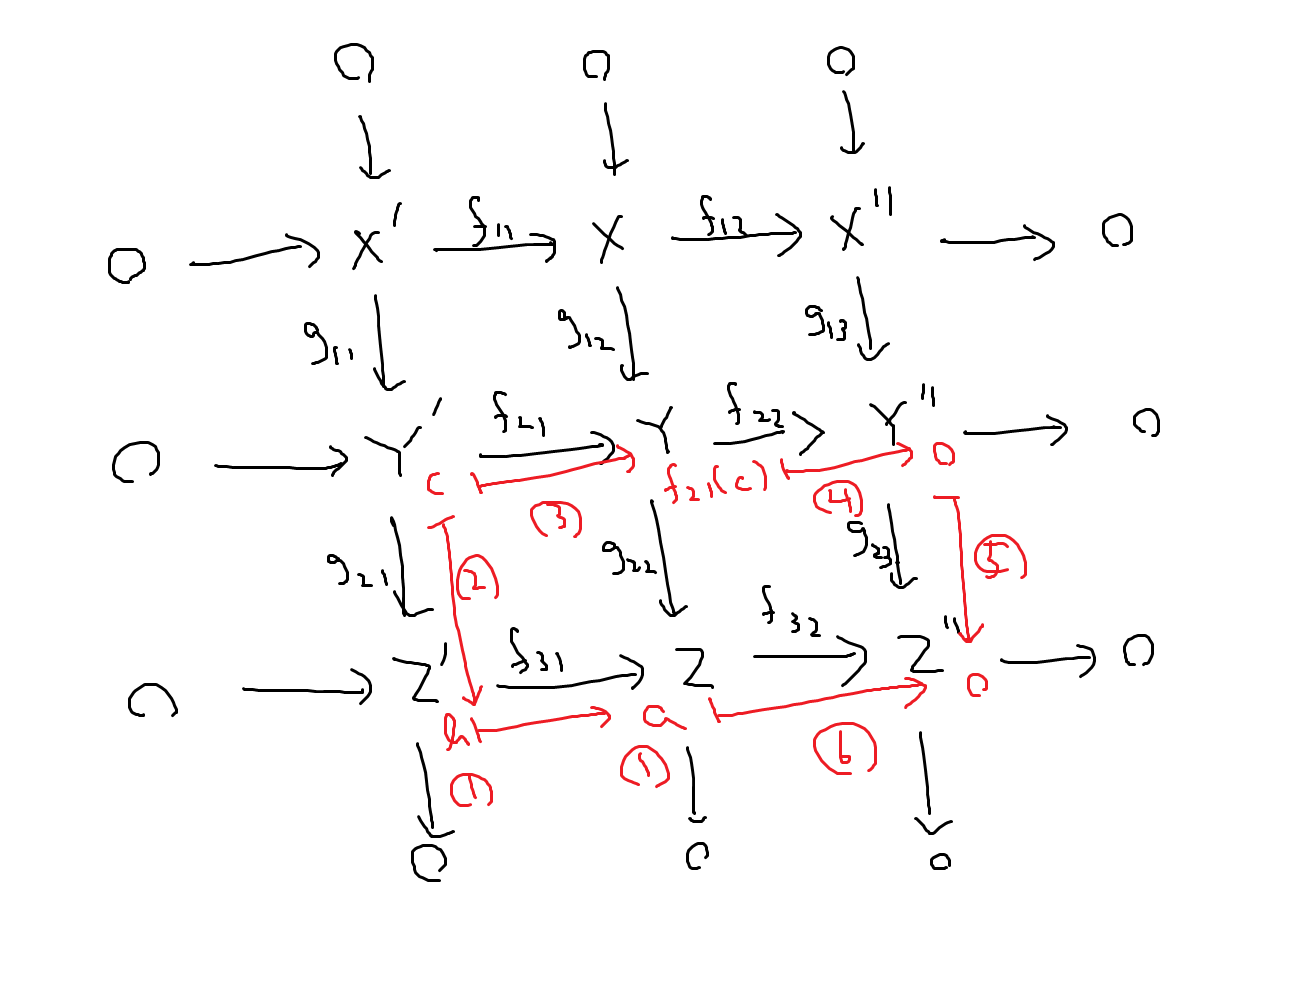 0 0 0
0 → X' f₁₁ → X f₁₂ → X'' → 0
g₁₁ g₁₂ g₁₃
0 → Y' f₂₁ → Y f₂₂ → Y'' → 0
c ③ f₂₁(c) ④ 0
g₂₁ ② g₂₂ g₂₃ ⑤
0 → Z' f₃₁ → Z f₃₂ → Z'' → 0
b a 0
① ① ⑥
0 0 0